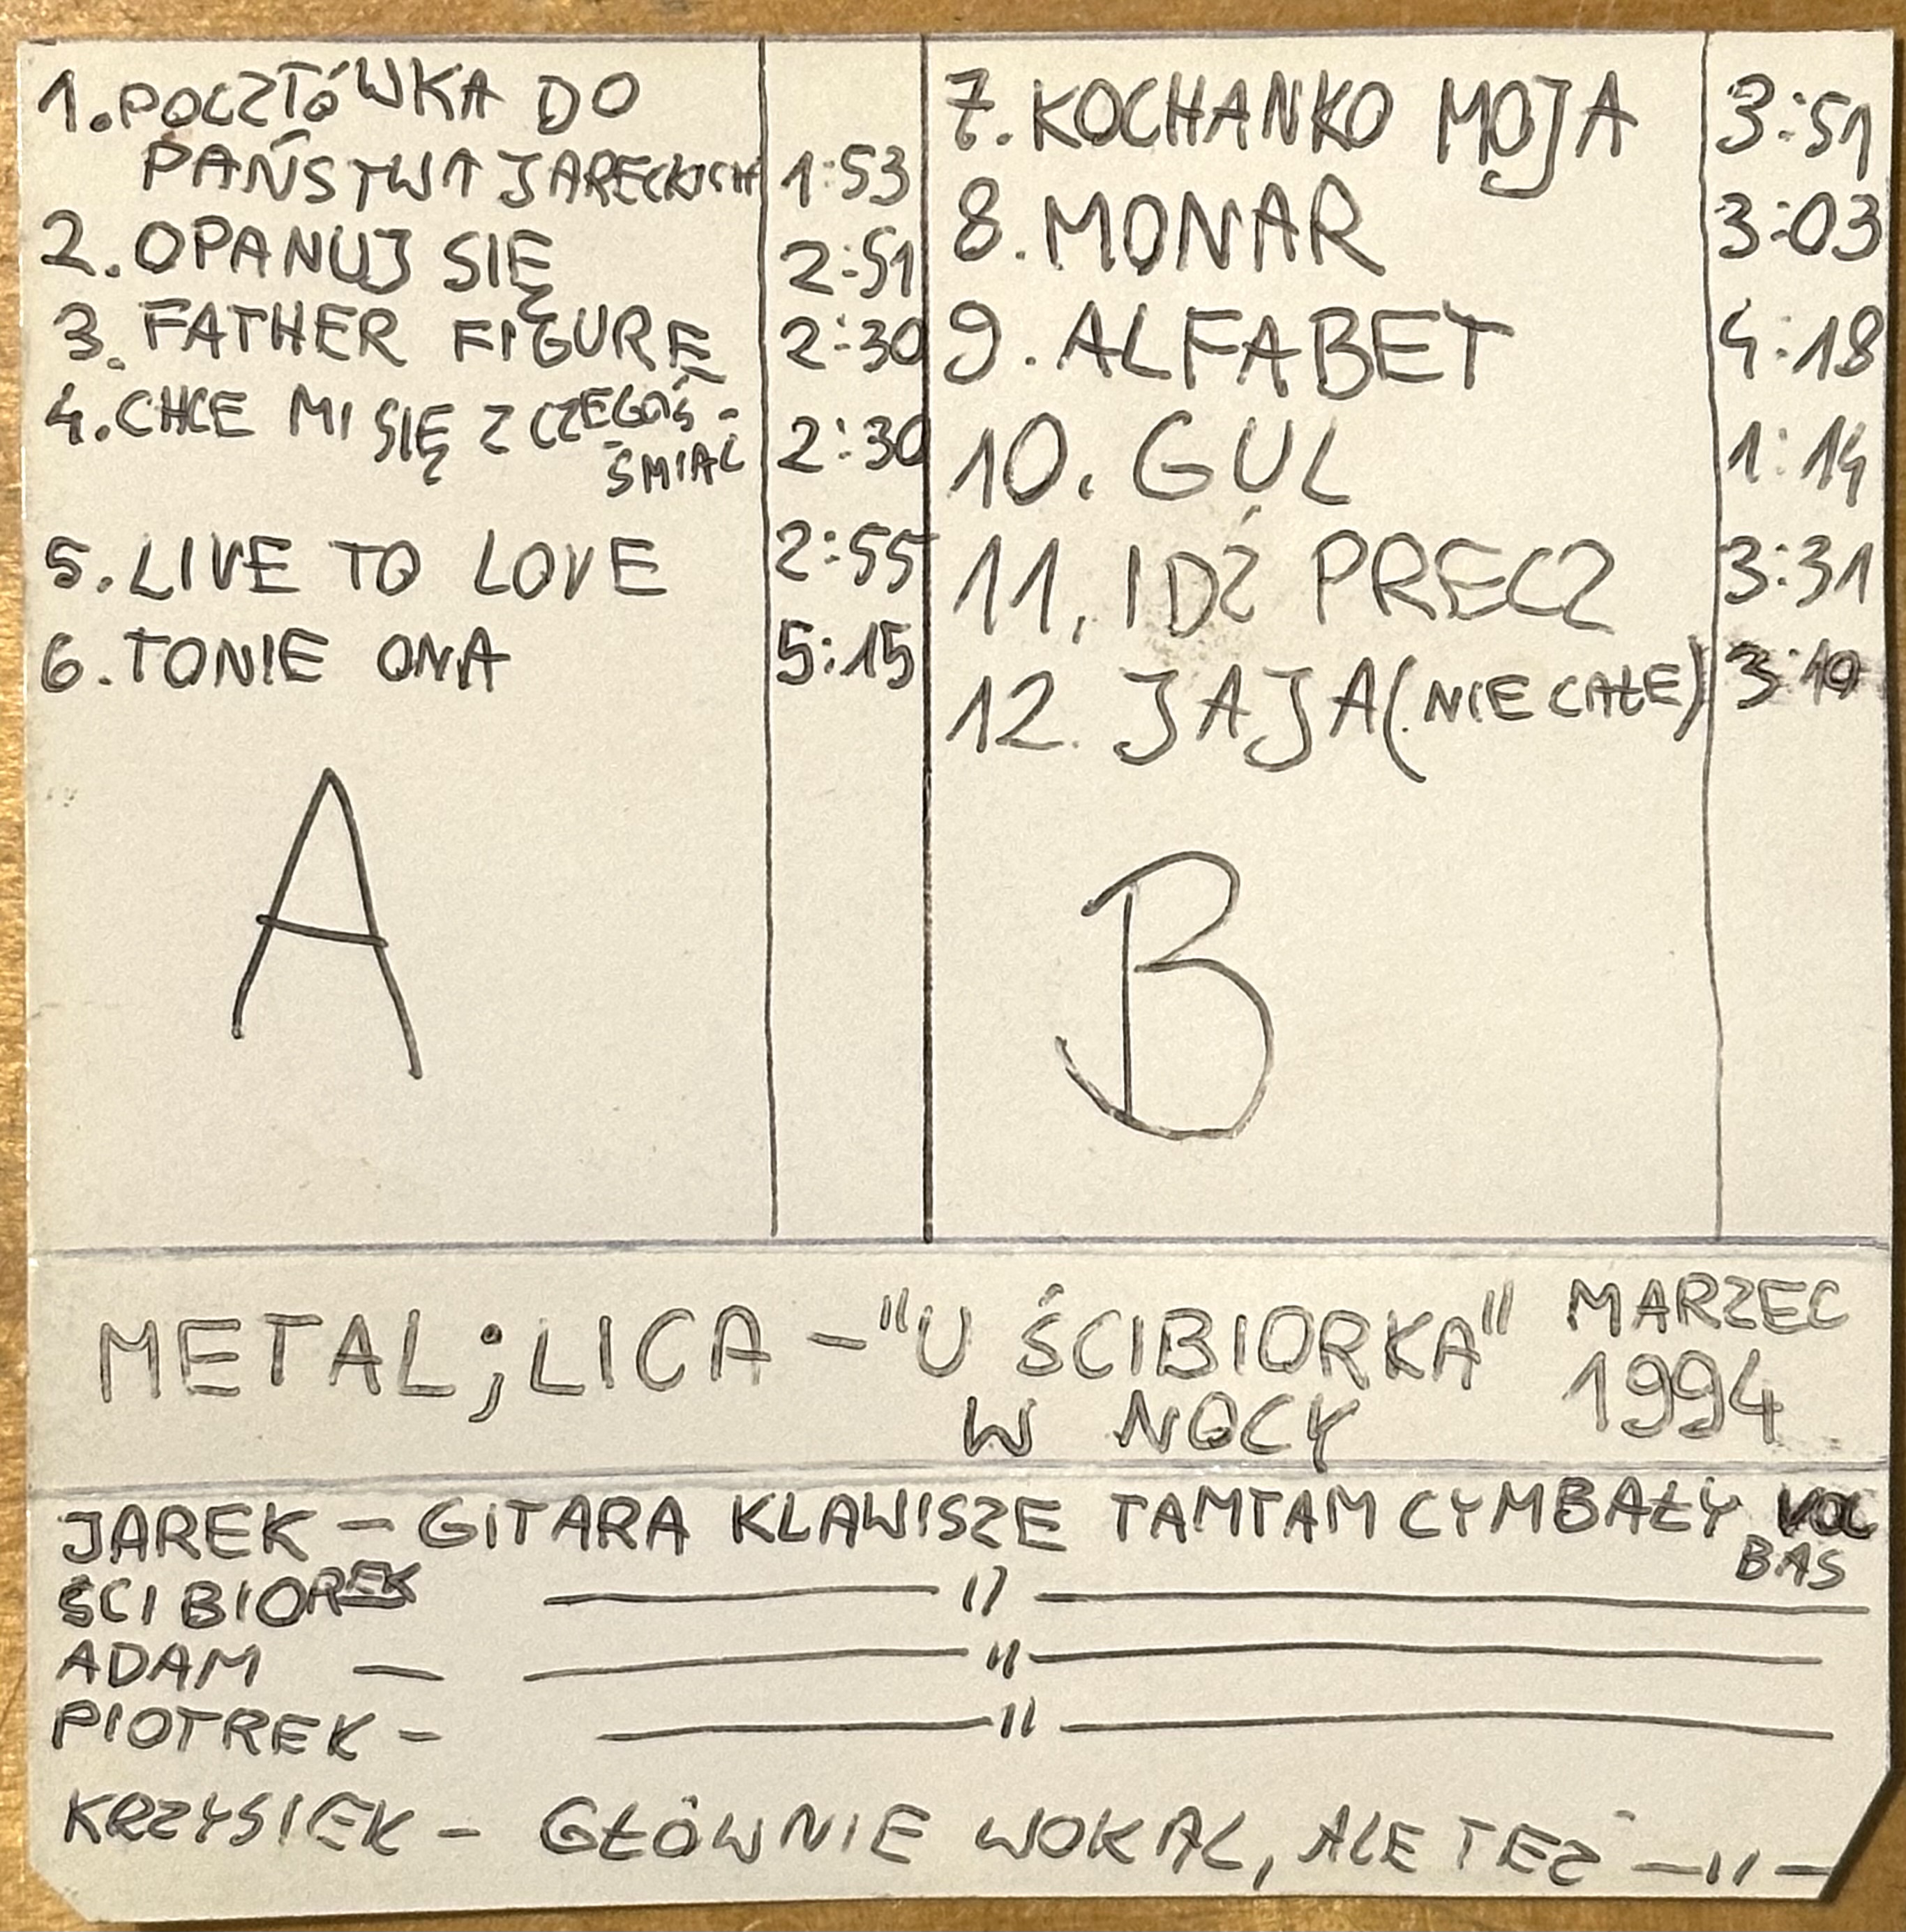 1. POCZTÓWKA DO
PAŃSTWA JARECKICH 1:53
2. OPANUJ SIĘ 2:51
3. FATHER FIGURE 2:30
4. CHCE MI SIĘ Z CZEGOŚ -
ŚMIAĆ 2:30
5. LIVE TO LOVE 2:55
6. TONIE ONA 5:15
A
7. KOCHANKO MOJA 3:51
8. MONAR 3:03
9. ALFABET 4:18
10. GUL 1:14
11. IDŹ PRECZ 3:31
12. JAJA (NIE CAŁE) 3:10
B
METAL;LICA - "U ŚCIBIORKA" MARZEC
W NOCY 1994
JAREK - GITARA KLAWISZE TAMTAM CYMBAŁY VOC
BAS
ŚCIBIOREK — " —
ADAM — — " —
PIOTREK - — " —
KRZYSIEK - GŁÓWNIE WOKAL, ALE TEŻ — " —